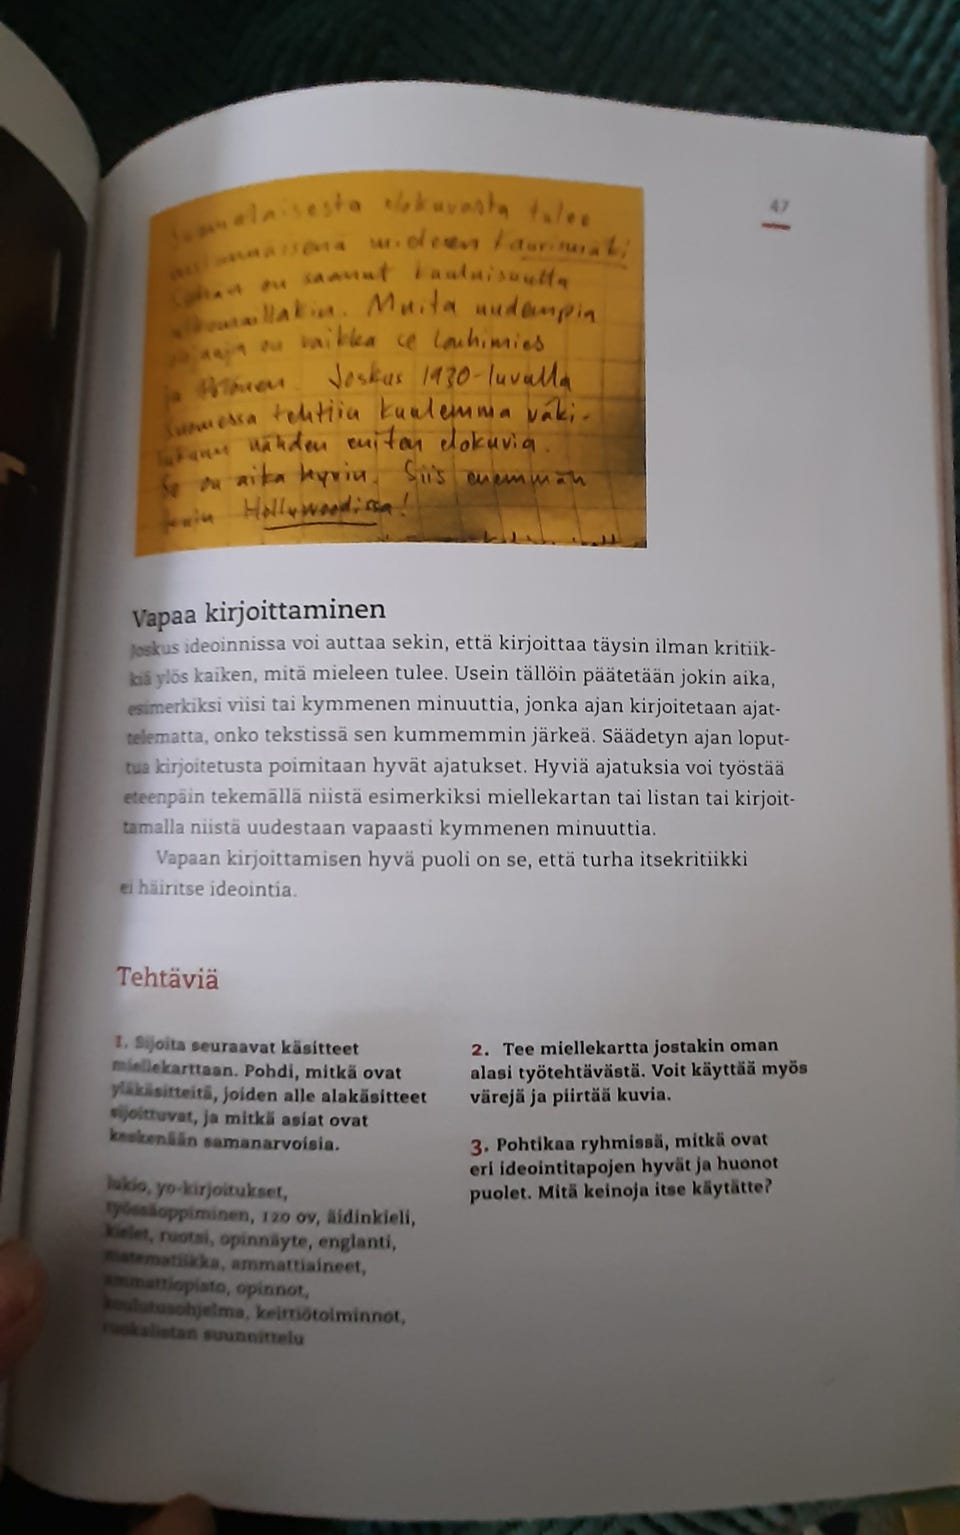 47
Suomalaisesta elokuvasta tulee
ensimmäisenä mieleen Kaurismäki
on saanut kuuluisuutta
ulkomaillakin. Muita uudempia
ohjaajia on vaikka se Louhimies
ja Pölönen. Joskus 1930-luvulla
Suomessa tehtiin kuulemma väki-
lukuun nähden eniten elokuvia.
Se on aika hyvin. Siis enemmän
kuin Hollywoodissa!
Vapaa kirjoittaminen
Joskus ideoinnissa voi auttaa sekin, että kirjoittaa täysin ilman kritiik-
kiä ylös kaiken, mitä mieleen tulee. Usein tällöin päätetään jokin aika,
esimerkiksi viisi tai kymmenen minuuttia, jonka ajan kirjoitetaan ajat-
telematta, onko tekstissä sen kummemmin järkeä. Säädetyn ajan loput-
tua kirjoitetusta poimitaan hyvät ajatukset. Hyviä ajatuksia voi työstää
eteenpäin tekemällä niistä esimerkiksi miellekartan tai listan tai kirjoit-
tamalla niistä uudestaan vapaasti kymmenen minuuttia.
Vapaan kirjoittamisen hyvä puoli on se, että turha itsekritiikki
ei häiritse ideointia.
Tehtäviä
1. Sijoita seuraavat käsitteet
miellekarttaan. Pohdi, mitkä ovat
yläkäsitteitä, joiden alle alakäsitteet
sijoittuvat, ja mitkä asiat ovat
keskenään samanarvoisia.
lukio, yo-kirjoitukset,
työssäoppiminen, 120 ov, äidinkieli,
kielet, ruotsi, opinnäyte, englanti,
matematiikka, ammattiaineet,
ammattiopisto, opinnot,
koulutusohjelma, keittiötoiminnot,
ruokalistan suunnittelu
2. Tee miellekartta jostakin oman
alasi työtehtävästä. Voit käyttää myös
värejä ja piirtää kuvia.
3. Pohtikaa ryhmissä, mitkä ovat
eri ideointitapojen hyvät ja huonot
puolet. Mitä keinoja itse käytätte?